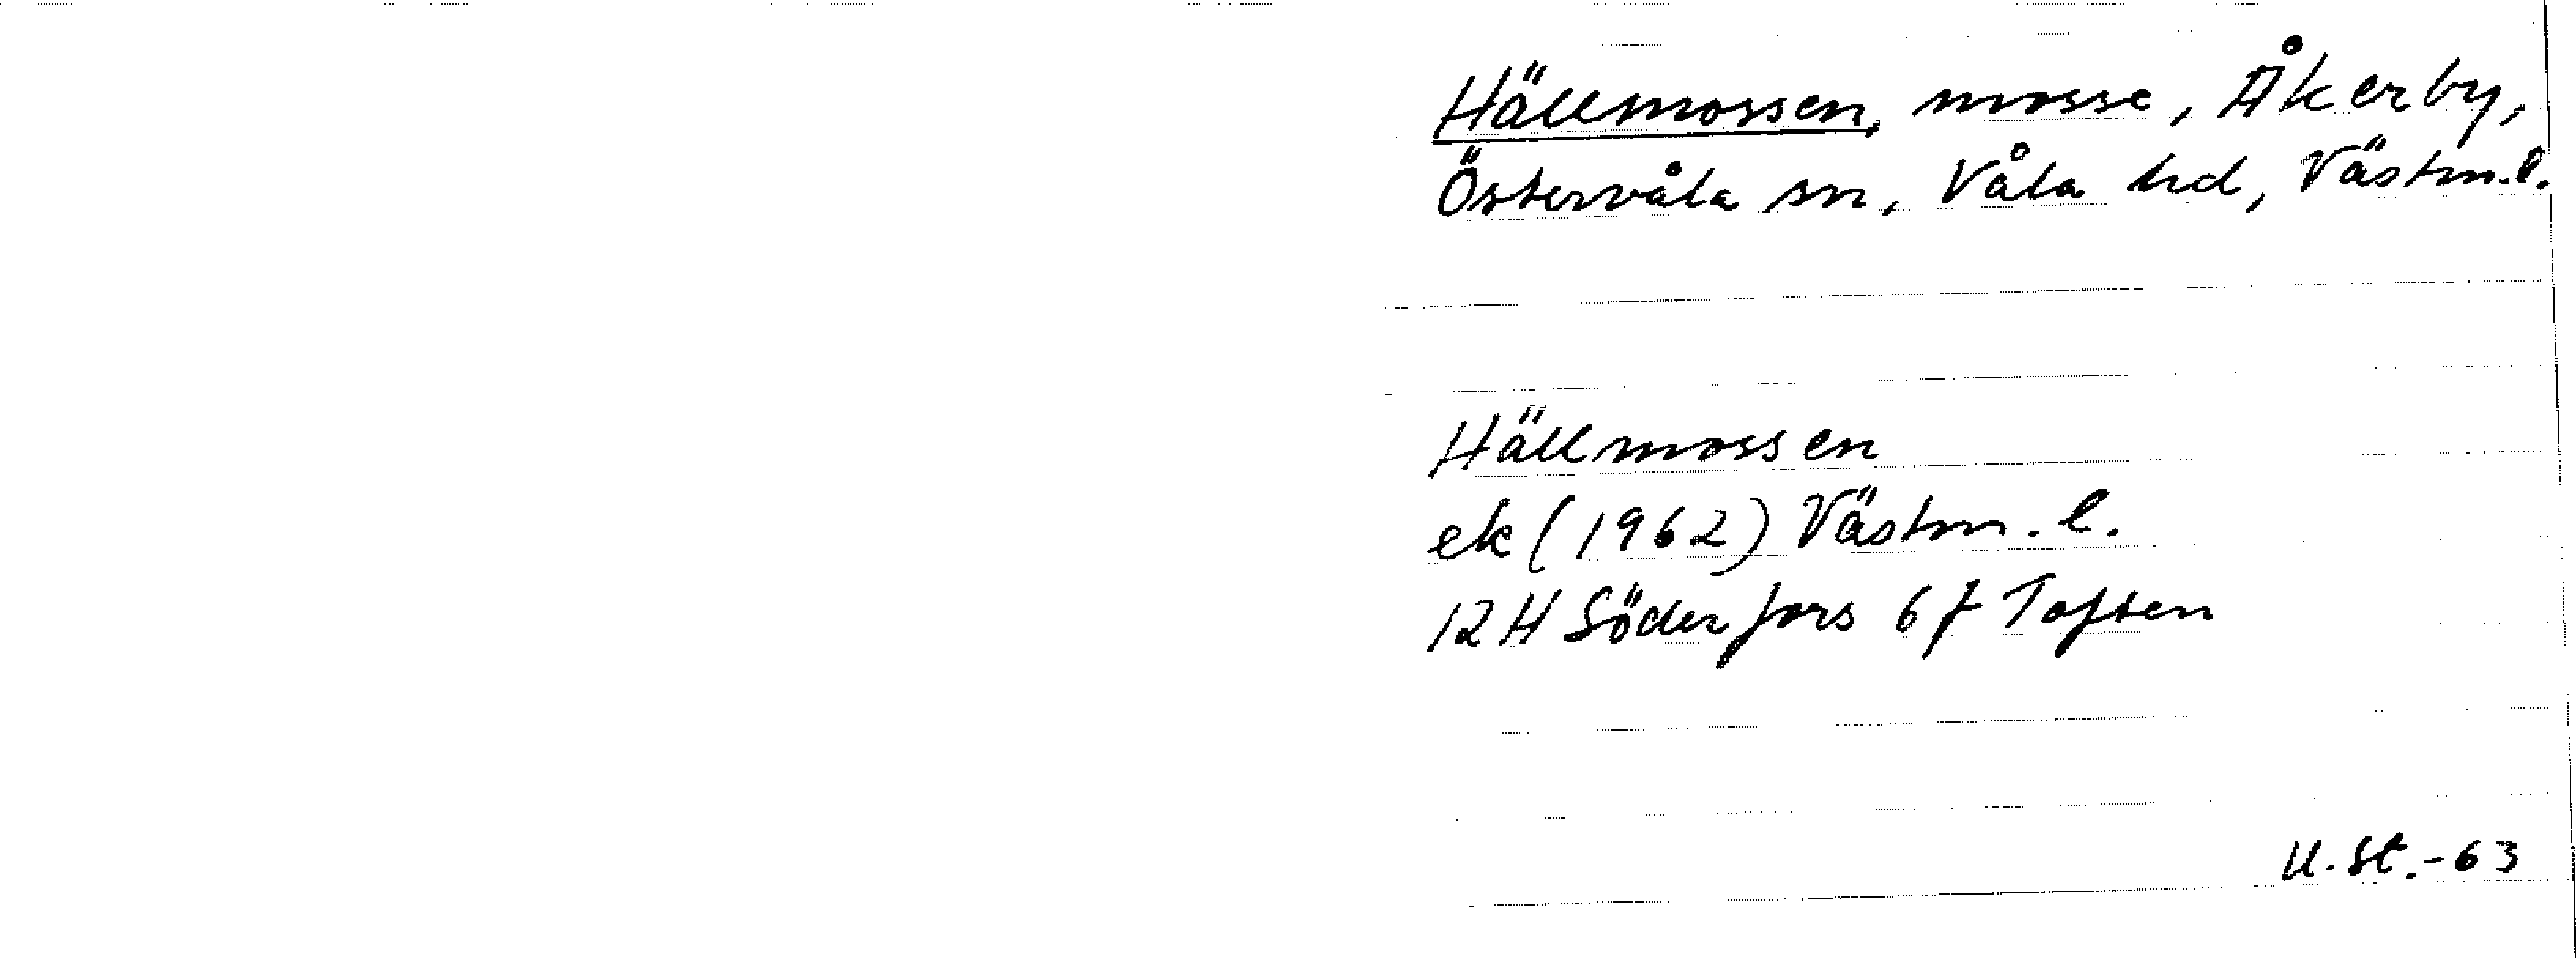 Hällmossen, mosse, Åkerby,
Östervåla sn, Våla hd, Västm.l.
Hällmossen
ek (1962) Västm.l.
12H Söderfors 6f Toften
U.St.-63